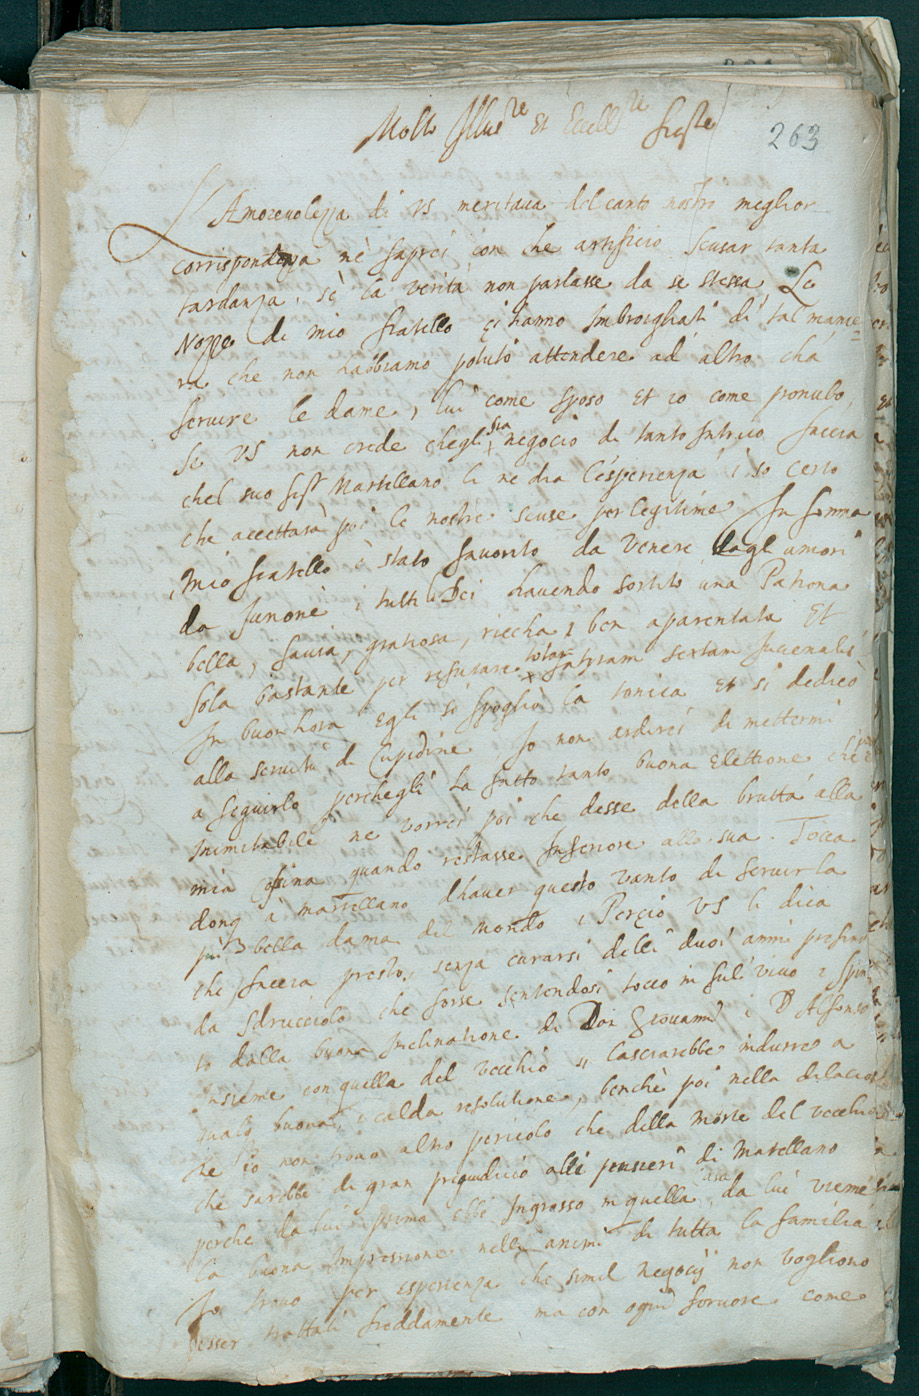 Molto Illre et Eccellre Sigre
263
L'Amorevolezza di VS meritava del canto nostro meglior
corrispondenza nè saprei con che artificio scusar tanta
tardanza, sè la verità non parlasse da se stessa, Le
Nozze di mio fratello ci hanno Imbroigliati di tal manie=
ra che non habbiamo potuto attendere ad altro chà
servire le dame, lui come sposo et io come pronubo,
Se VS non crede chegli sia negocio di tanto Intrico faccia
chel suo Sigr Marsillano li ne dia l'esperienza, i so certo
che accettarà poi le nostre scuse per legitime. In somma
mio fratello è stato favorito da Venere dagl amori
da Junone i tutti li Dei havendo sortito una Patrona
bella, savia, gratiosa, riccha e ben aparentata et
sola bastante per refutare totam Satyram sextam Juvenalis
In buon hora egli si spogliò la tonica et si dedicò
alla servitù di Cupidine Io non ardirei di mettermi
a seguirlo perchegli ha fatto tanto buona Elettione ch'è
Inimitabile ne vorrei poi che desse della brutta alla
mia quando restasse Inferiore alla sua. Tocca
donq a Marsillano d'haver questo vanto di servir la
più bella dama del Mondo, i Perciò VS li dica
che faccia presto, senza curarsi delli duoi anni
da Sdrucciolo che forse sentendosi tocco in sul vivo e spin
to dalla buona Inclinatione di Don Giovanni i D Alfonso
insieme con quella del vecchio si lasciarebbe indurre a
buona, e calda resolutione, benchè poi nella dilacio
ne io non trovo altro pericolo che della morte del vecchio
che sarebbe di gran prejudicio alli pensieri di Marsillano
perche da lui prima ebbe Ingresso in quella casa da lui viene
la buona Impressione nelli animi di tutta la familia
Io trovo per esperienza che simil negocij non vogliono
esser trattati freddamente ma con ogni fervore come